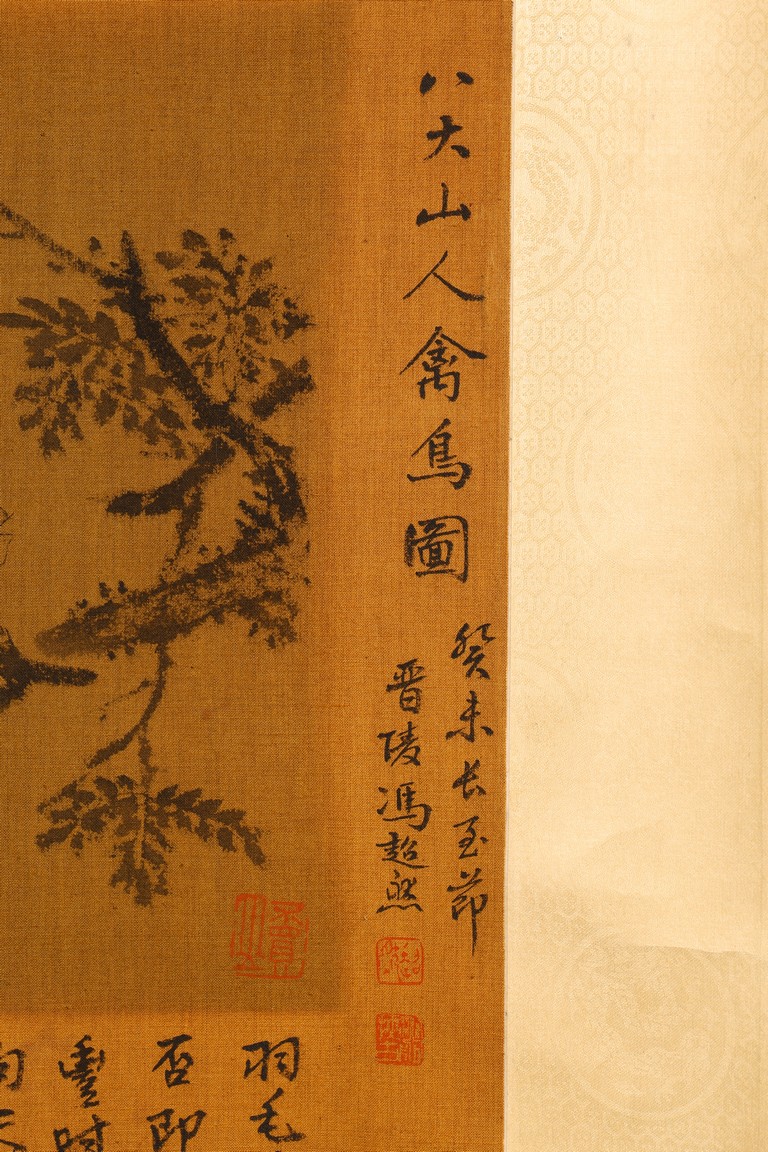 八大山人禽鳥圖
癸未长至節
晋陵馮超然
羽毛
否即
豐時